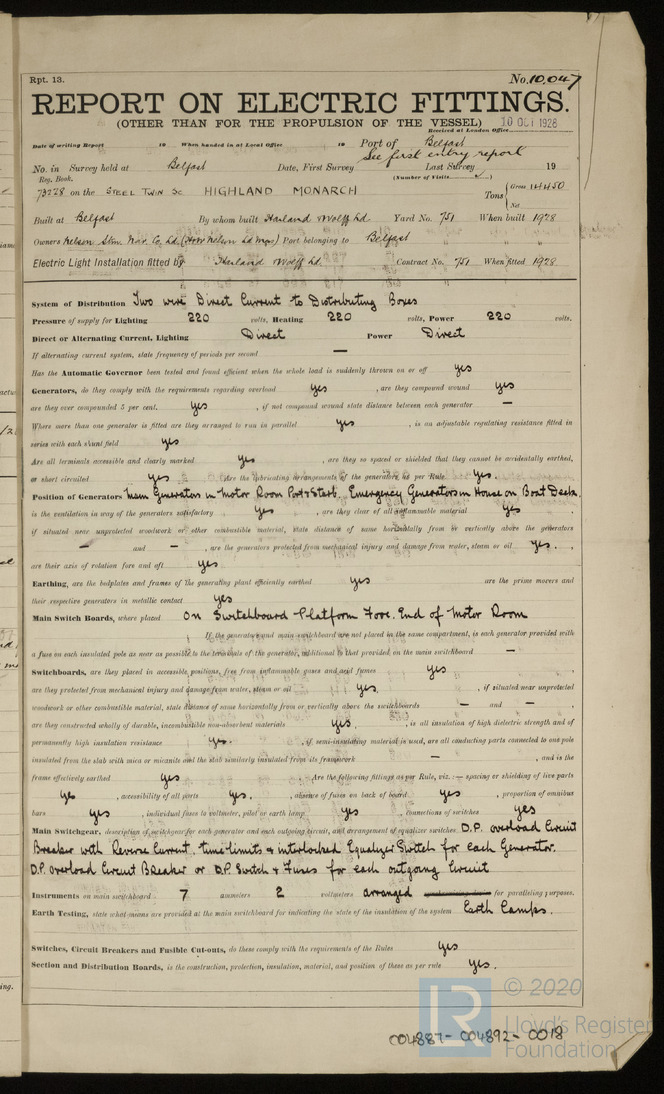 Rpt. 13.
No. 10,047
REPORT ON ELECTRIC FITTINGS.
(OTHER THAN FOR THE PROPULSION OF THE VESSEL)
Received at London Office 10 OCT 1928
Date of writing Report 19 When handed in at Local Office 19 Port of Belfast
See first entry report
No. in Survey held at Belfast Date, First Survey Last Survey 19
Reg. Book. (Number of Visits ✓)
73228 on the STEEL TWIN SC HIGHLAND MONARCH Tons { Gross 14450
Net
Built at Belfast By whom built Harland Wolff Ld. Yard No. 751 When built 1928
Owners Nelson Stm. Nav. Co. Ld. (H&W Nelson Ld mgrs) Port belonging to Belfast
Electric Light Installation fitted by Harland Wolff Ld. Contract No. 751 When fitted 1928
System of Distribution Two wire Direct Current to Distributing Boxes
Pressure of supply for Lighting 220 volts, Heating 220 volts, Power 220 volts,
Direct or Alternating Current, Lighting Direct Power Direct
If alternating current system, state frequency of periods per second —
Has the Automatic Governor been tested and found efficient when the whole load is suddenly thrown on or off yes
Generators, do they comply with the requirements regarding overload yes , are they compound wound yes
are they over compounded 5 per cent. yes , if not compound wound state distance between each generator —
Where more than one generator is fitted are they arranged to run in parallel yes , is an adjustable regulating resistance fitted in
series with each shunt field yes
Are all terminals accessible and clearly marked yes , are they so spaced or shielded that they cannot be accidentally earthed,
or short circuited yes . Are the lubricating arrangements of the generators as per Rule yes.
Position of Generators Main Generators in Motor Room Port & Starb. Emergency Generators in House on Boat Deck.
is the ventilation in way of the generators satisfactory yes , are they clear of all inflammable material yes ,
if situated near unprotected woodwork or other combustible material, state distance of same horizontally from or vertically above the generators
— and — , are the generators protected from mechanical injury and damage from water, steam or oil yes. ,
are their axis of rotation fore and aft yes.
Earthing, are the bedplates and frames of the generating plant efficiently earthed yes are the prime movers and
their respective generators in metallic contact yes
Main Switch Boards, where placed On Switchboard Platform Fore. End of Motor Room
If the generators and main switchboard are not placed in the same compartment, is each generator provided with
a fuse on each insulated pole as near as possible to the terminals of the generator, additional to that provided on the main switchboard —
Switchboards, are they placed in accessible positions, free from inflammable gases and acid fumes yes ,
are they protected from mechanical injury and damage from water, steam or oil yes. , if situated near unprotected
woodwork or other combustible material, state distance of same horizontally from or vertically above the switchboards — and — ,
are they constructed wholly of durable, incombustible non-absorbent materials yes. , is all insulation of high dielectric strength and of
permanently high insulation resistance yes. , if semi-insulating material is used, are all conducting parts connected to one pole
insulated from the slab with mica or micanite and the slab similarly insulated from its framework — , and is the
frame effectively earthed yes . Are the following fittings as per Rule, viz.:— spacing or shielding of live parts
yes , accessibility of all parts yes. , absence of fuses on back of board yes , proportion of omnibus
bars yes , individual fuses to voltmeter, pilot or earth lamp yes , connections of switches yes
Main Switchgear, description of switchgear for each generator and each outgoing circuit, and arrangement of equalizer switches. D.P. overload Circuit
Breaker with Reverse Current. time limits & interlocked Equalizer Switch for each Generator.
D.P. overload Circuit Breaker or D.P. Switch & Fuses for each outgoing Circuit
Instruments on main switchboard 7 ammeters 2 voltmeters arranged for paralleling purposes.
Earth Testing, state what means are provided at the main switchboard for indicating the state of the insulation of the system Earth Lamps.
Switches, Circuit Breakers and Fusible Cut-outs, do these comply with the requirements of the Rules yes
Section and Distribution Boards, is the construction, protection, insulation, material, and position of these as per rule yes.
© 2020
LR
Lloyd's Register
Foundation
004887-004892-0018